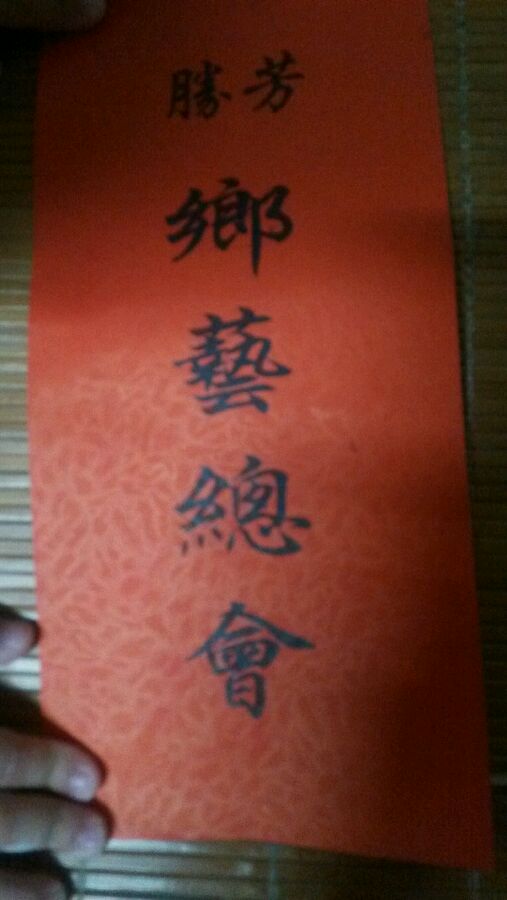 勝芳
鄉藝總會